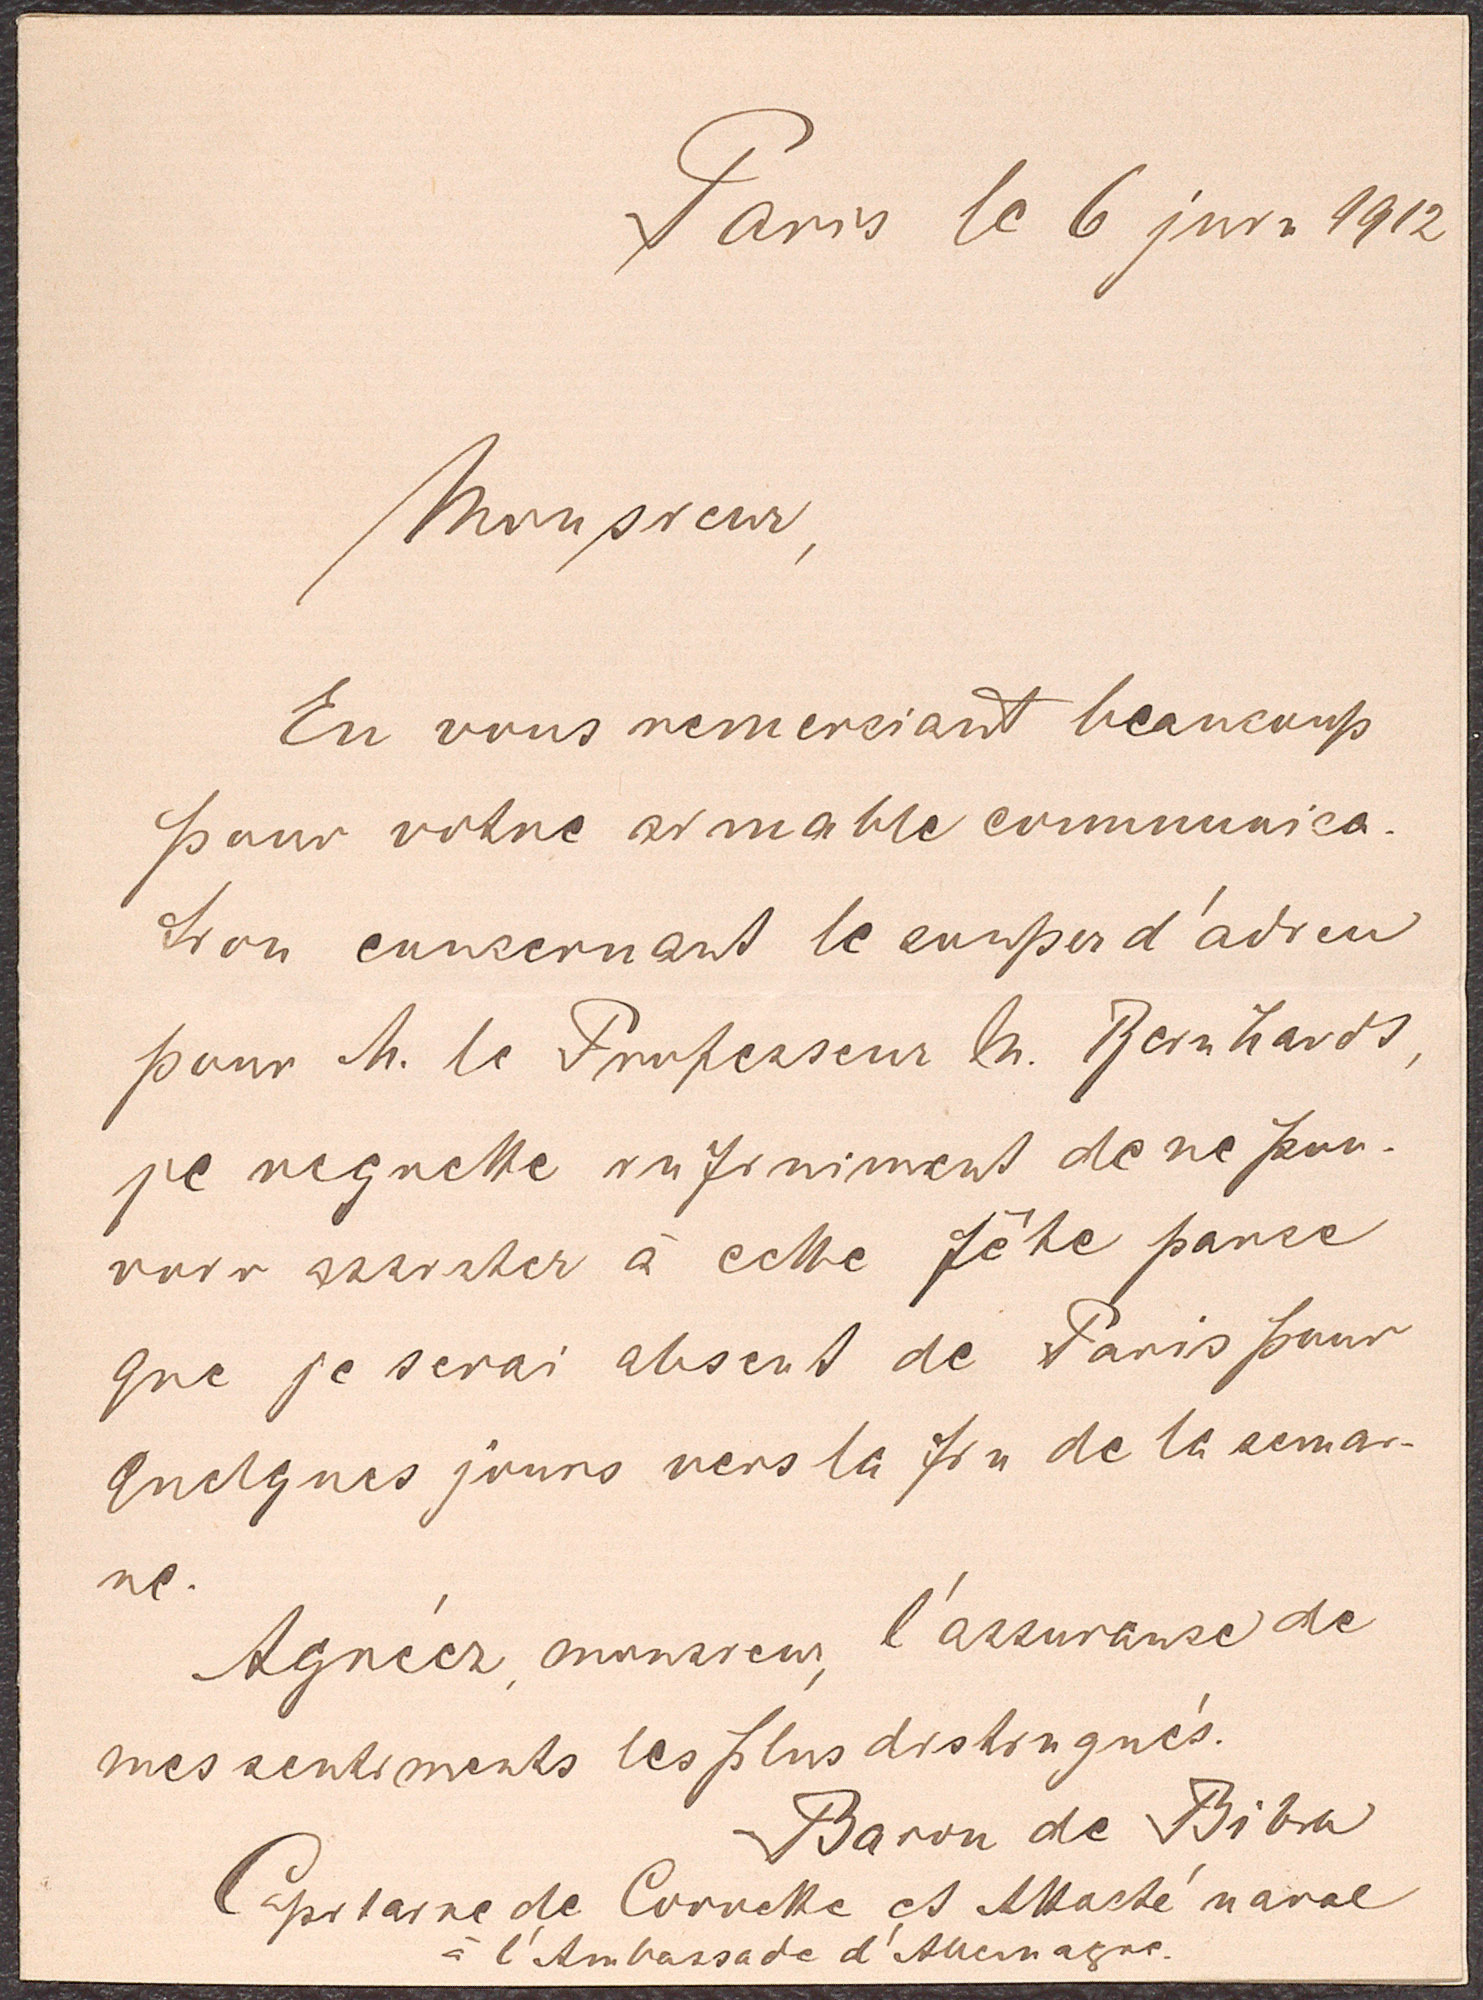 Paris le 6 juin 1912
Monsieur,
En vous remerciant beaucoup
pour votre aimable communica-
tion concernant le souper d'adieu
pour M. le Professeur M. Bernhardt,
je regrette infiniment de ne pou-
voir assister à cette fête parce
que je serai absent de Paris pour
quelques jours vers la fin de la semai-
ne.
Agréez, monsieur, l'assurance de
mes sentiments les plus distingués.
Baron de Bibra
Capitaine de Corvette et Attaché naval
à l'Ambassade d'Allemagne.